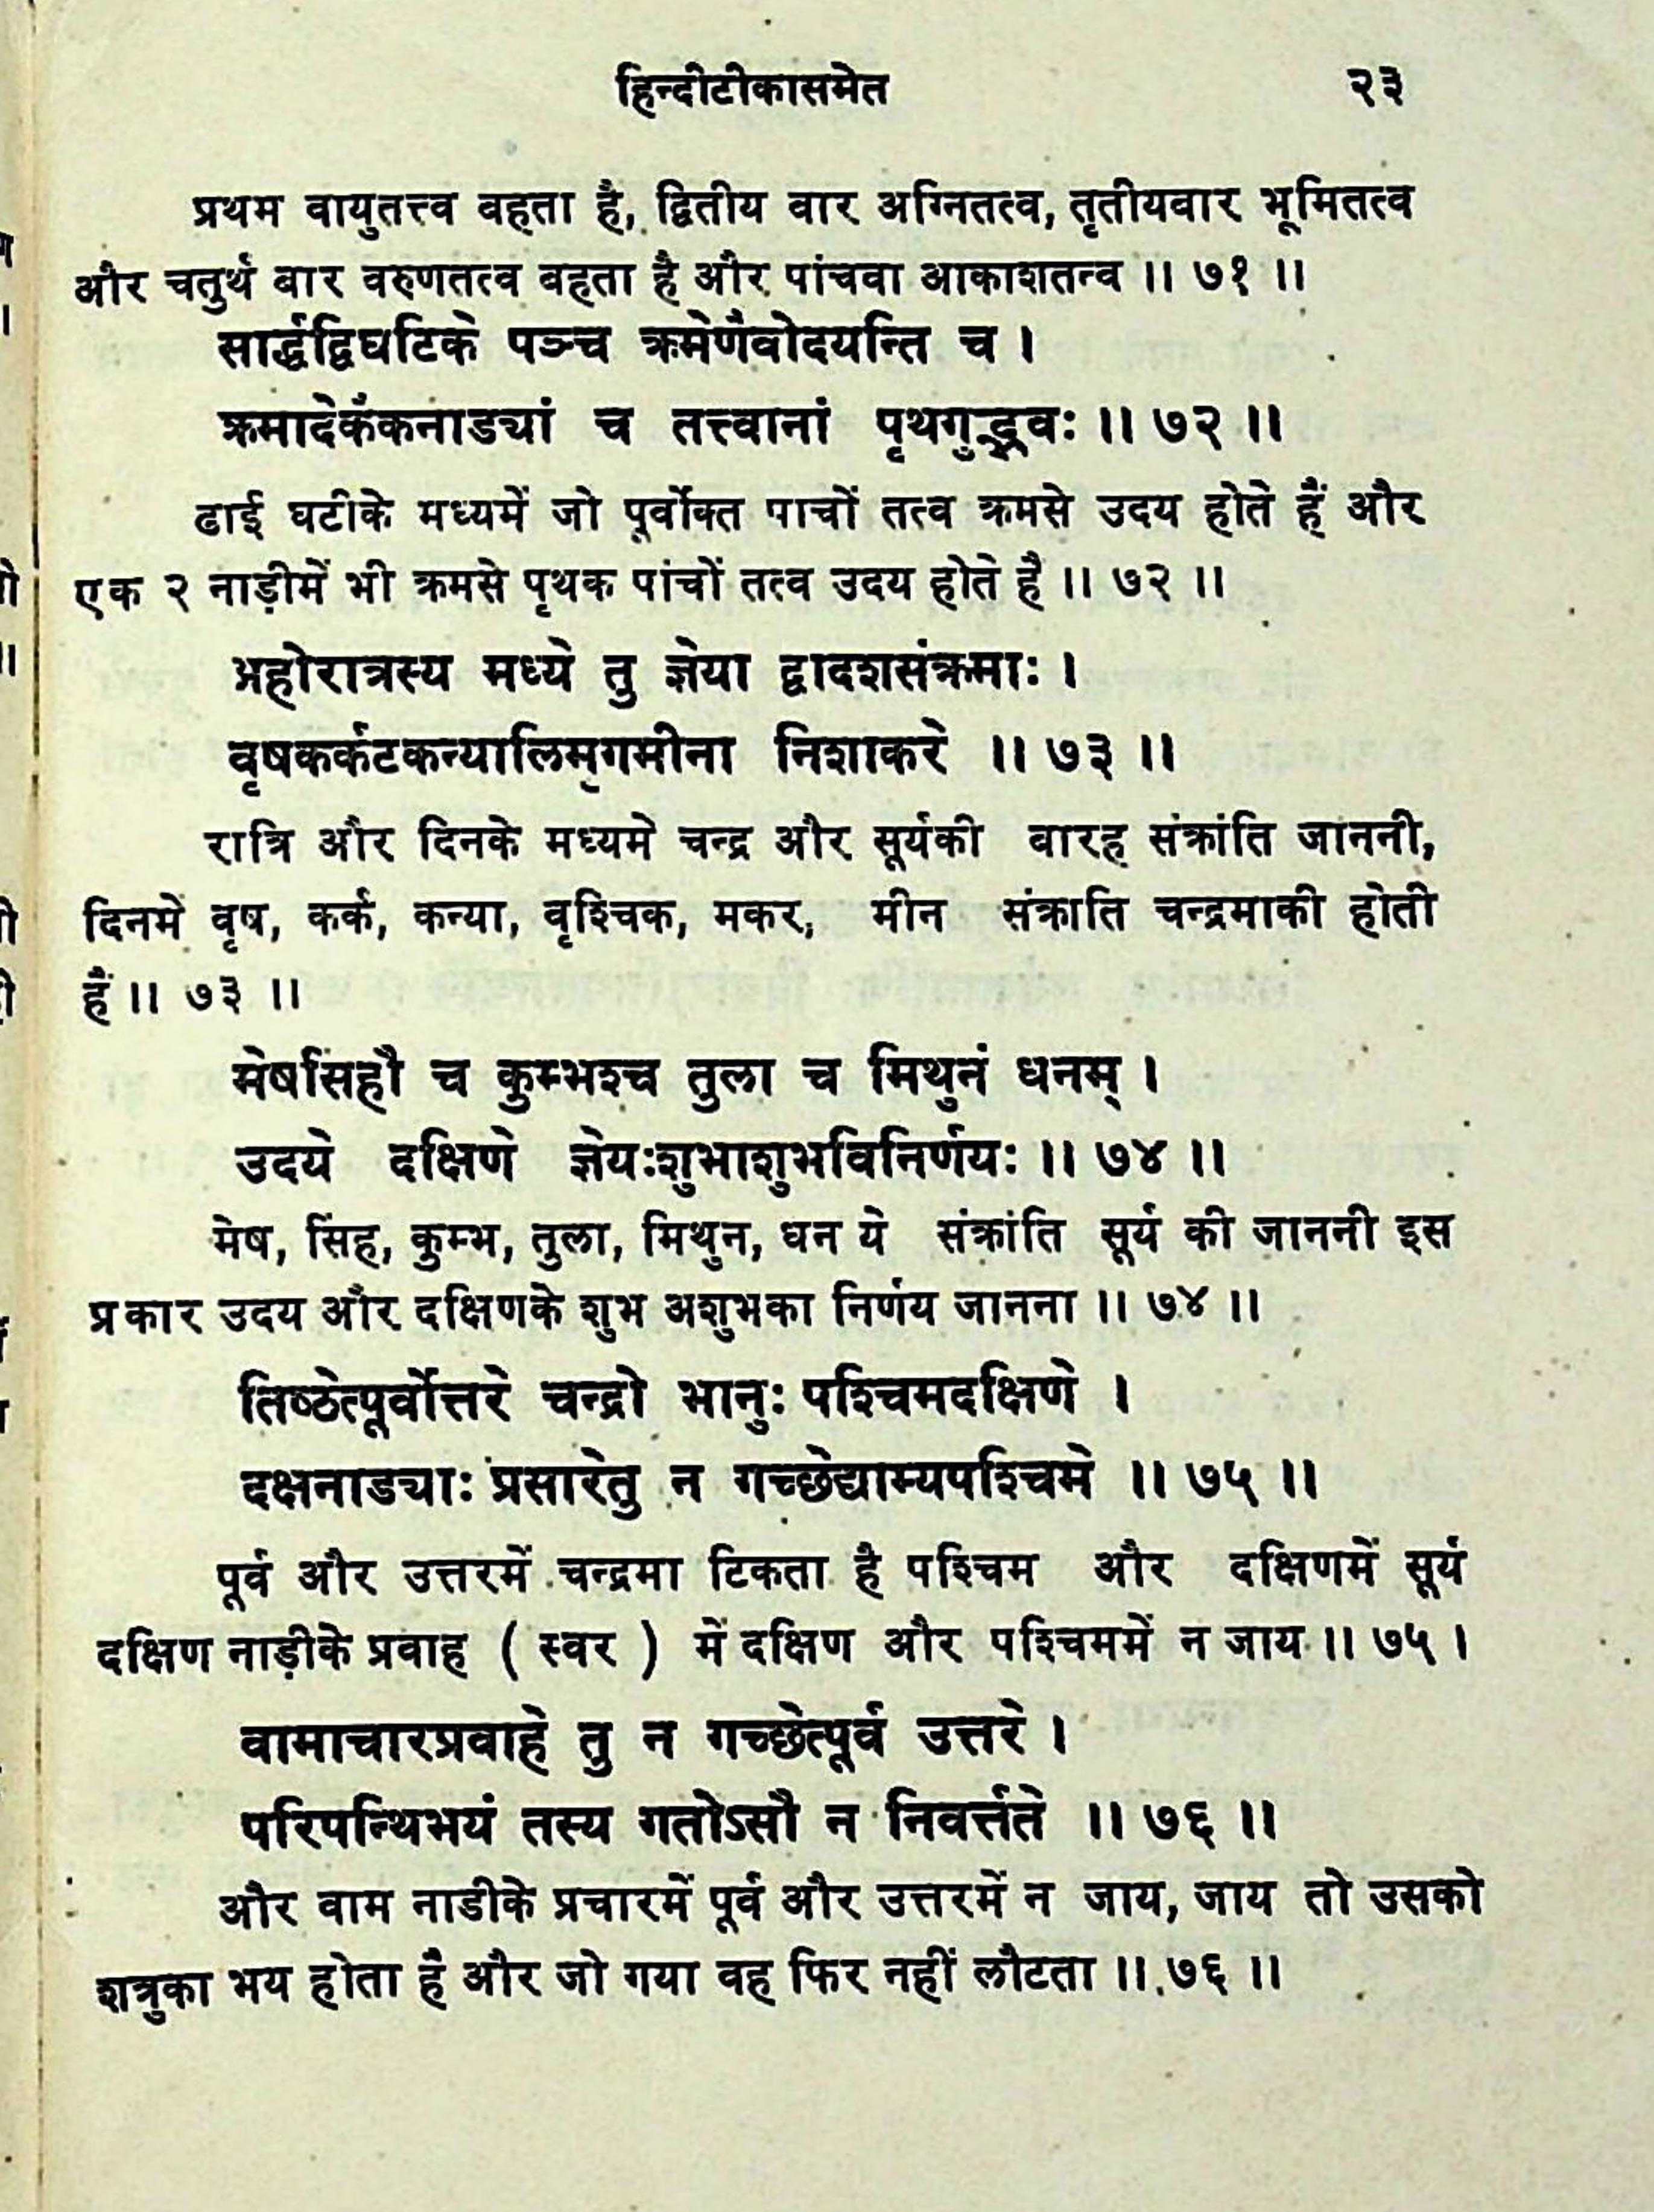 हिन्दीटीकासमेत २३
प्रथम वायुतत्त्व वहता है, द्वितीय वार अग्नितत्व, तृतीयवार भूमितत्व
और चतुर्थ बार वरुणतत्व वहता है और पांचवा आकाशतन्व ॥ ७१ ॥
सार्द्धद्विघटिके पञ्च क्रमेणैवोदयन्ति च ।
क्रमादेकैकनाड्यां च तत्त्वानां पृथगुद्भवः ॥ ७२ ॥
ढाई घटीके मध्यमें जो पूर्वोक्त पाचों तत्व क्रमसे उदय होते हैं और
एक २ नाड़ीमें भी क्रमसे पृथक पांचों तत्व उदय होते है ॥ ७२ ॥
अहोरात्रस्य मध्ये तु ज्ञेया द्वादशसंक्रमाः ।
वृषकर्कटकन्यालिमृगमीना निशाकरे ॥ ७३ ॥
रात्रि और दिनके मध्यमे चन्द्र और सूर्यकी वारह संक्रांति जाननी,
दिनमे वृष, कर्क, कन्या, वृश्चिक, मकर, मीन संक्राति चन्द्रमाकी होती
हैं ॥ ७३ ॥
मेषसिंहौ च कुम्भश्च तुला च मिथुनं धनम् ।
उदये दक्षिणे ज्ञेयःशुभाशुभविनिर्णयः ॥ ७४ ॥
मेष, सिंह, कुम्भ, तुला, मिथुन, धन ये संक्रांति सूर्य की जाननी इस
प्रकार उदय और दक्षिणके शुभ अशुभका निर्णय जानना ॥ ७४ ॥
तिष्ठेत्पूर्वोत्तरे चन्द्रो भानुः पश्चिमदक्षिणे ।
दक्षनाड्याः प्रसारेतु न गच्छेद्याम्यपश्चिमे ॥ ७५ ॥
पूर्व और उत्तरमें चन्द्रमा टिकता है पश्चिम और दक्षिणमें सूर्य
दक्षिण नाड़ीके प्रवाह ( स्वर ) में दक्षिण और पश्चिममें न जाय ॥ ७५ ।
वामाचारप्रवाहे तु न गच्छेत्पूर्व उत्तरे ।
परिपन्थिभयं तस्य गतोऽसौ न निवर्त्तते ॥ ७६ ॥
और वाम नाडीके प्रचारमें पूर्व और उत्तरमें न जाय, जाय तो उसको
शत्रुका भय होता है और जो गया वह फिर नहीं लौटता ॥ ७६ ॥